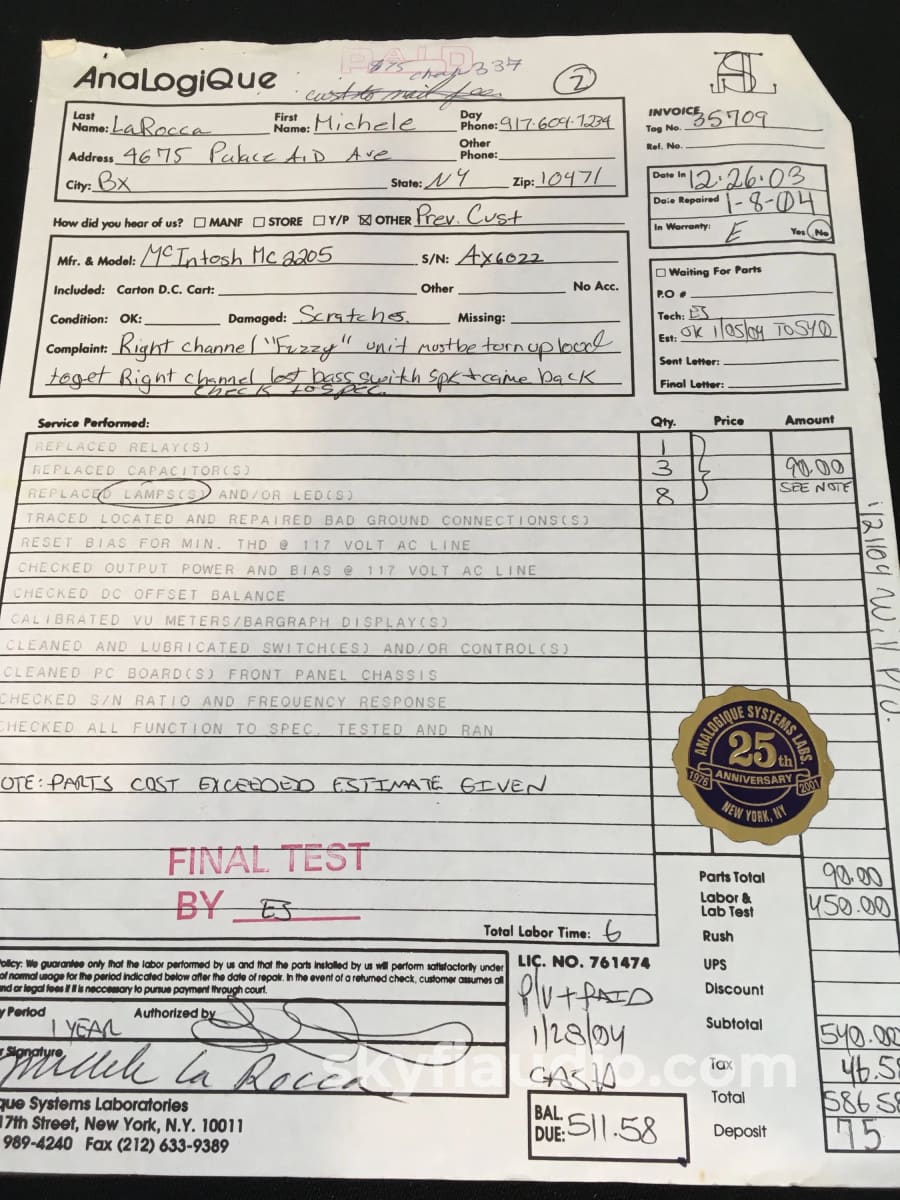 PAID
$75 check 337
cust to mail fee.
2
AnaLogiQue
ASL
Last Name: LaRocca First Name: Michele Day Phone: 917.609.7234
Other Phone:
Address 4675 Palace Ave
City: Bx State: NY Zip: 10471
INVOICE
Tag No. 35709
Ref. No.
Date In 12.26.03
Date Repaired 1-8-04
In Warranty: E Yes No
How did you hear of us? MANF STORE Y/P OTHER Prev. Cust
Mfr. & Model: McIntosh Mc2205 S/N: AX6022
Included: Carton D.C. Cart: Other No Acc.
Condition: OK: Damaged: Scratches. Missing:
Complaint: Right channel "Fuzzy" unit must be turn up loud
to get Right channel lost bass swith spk + came back
check to spec.
Waiting For Parts
P.O #
Tech: ES
Est: OK 1/05/04
Sent Letter:
Final Letter:
Service Performed: Qty. Price Amount
REPLACED RELAY(S) 1
REPLACED CAPACITOR(S) 3 90.00
REPLACED LAMPS(S) AND/OR LED(S) 8 SEE NOTE
TRACED LOCATED AND REPAIRED BAD GROUND CONNECTIONS(S)
RESET BIAS FOR MIN. THD @ 117 VOLT AC LINE
CHECKED OUTPUT POWER AND BIAS @ 117 VOLT AC LINE
CHECKED DC OFFSET BALANCE
CALIBRATED VU METERS/BARGRAPH DISPLAY(S)
CLEANED AND LUBRICATED SWITCH(ES) AND/OR CONTROL(S)
CLEANED PC BOARD(S) FRONT PANEL CHASSIS
CHECKED S/N RATIO AND FREQUENCY RESPONSE
CHECKED ALL FUNCTION TO SPEC, TESTED AND RAN
OTE: PARTS COST EXCEEDED ESTIMATE GIVEN
1/21/04 Will P/U.
ANALOGIQUE SYSTEMS LABS.
25th
1976 ANNIVERSARY 2001
NEW YORK, NY
FINAL TEST
BY ES
Total Labor Time: 6
Parts Total 90.00
Labor & Lab Test 450.00
Rush
UPS
Discount
Subtotal 540.00
Tax 46.58
Total 586.58
Deposit 75
olicy: We guarantee only that the labor performed by us and that the parts installed by us will perform satisfactorily under
of normal usage for the period indicated below after the date of repair. In the event of a returned check, customer assumes all
nd or legal fees if it is neccessary to pursue payment through court.
y Period 1 YEAR Authorized by
Signature Michele La Rocca
LIC. NO. 761474
P/U + PAID
1/28/04
CASH
BAL. DUE: 511.58
que Systems Laboratories
17th Street, New York, N.Y. 10011
989-4240 Fax (212) 633-9389
skyfiaudio.com